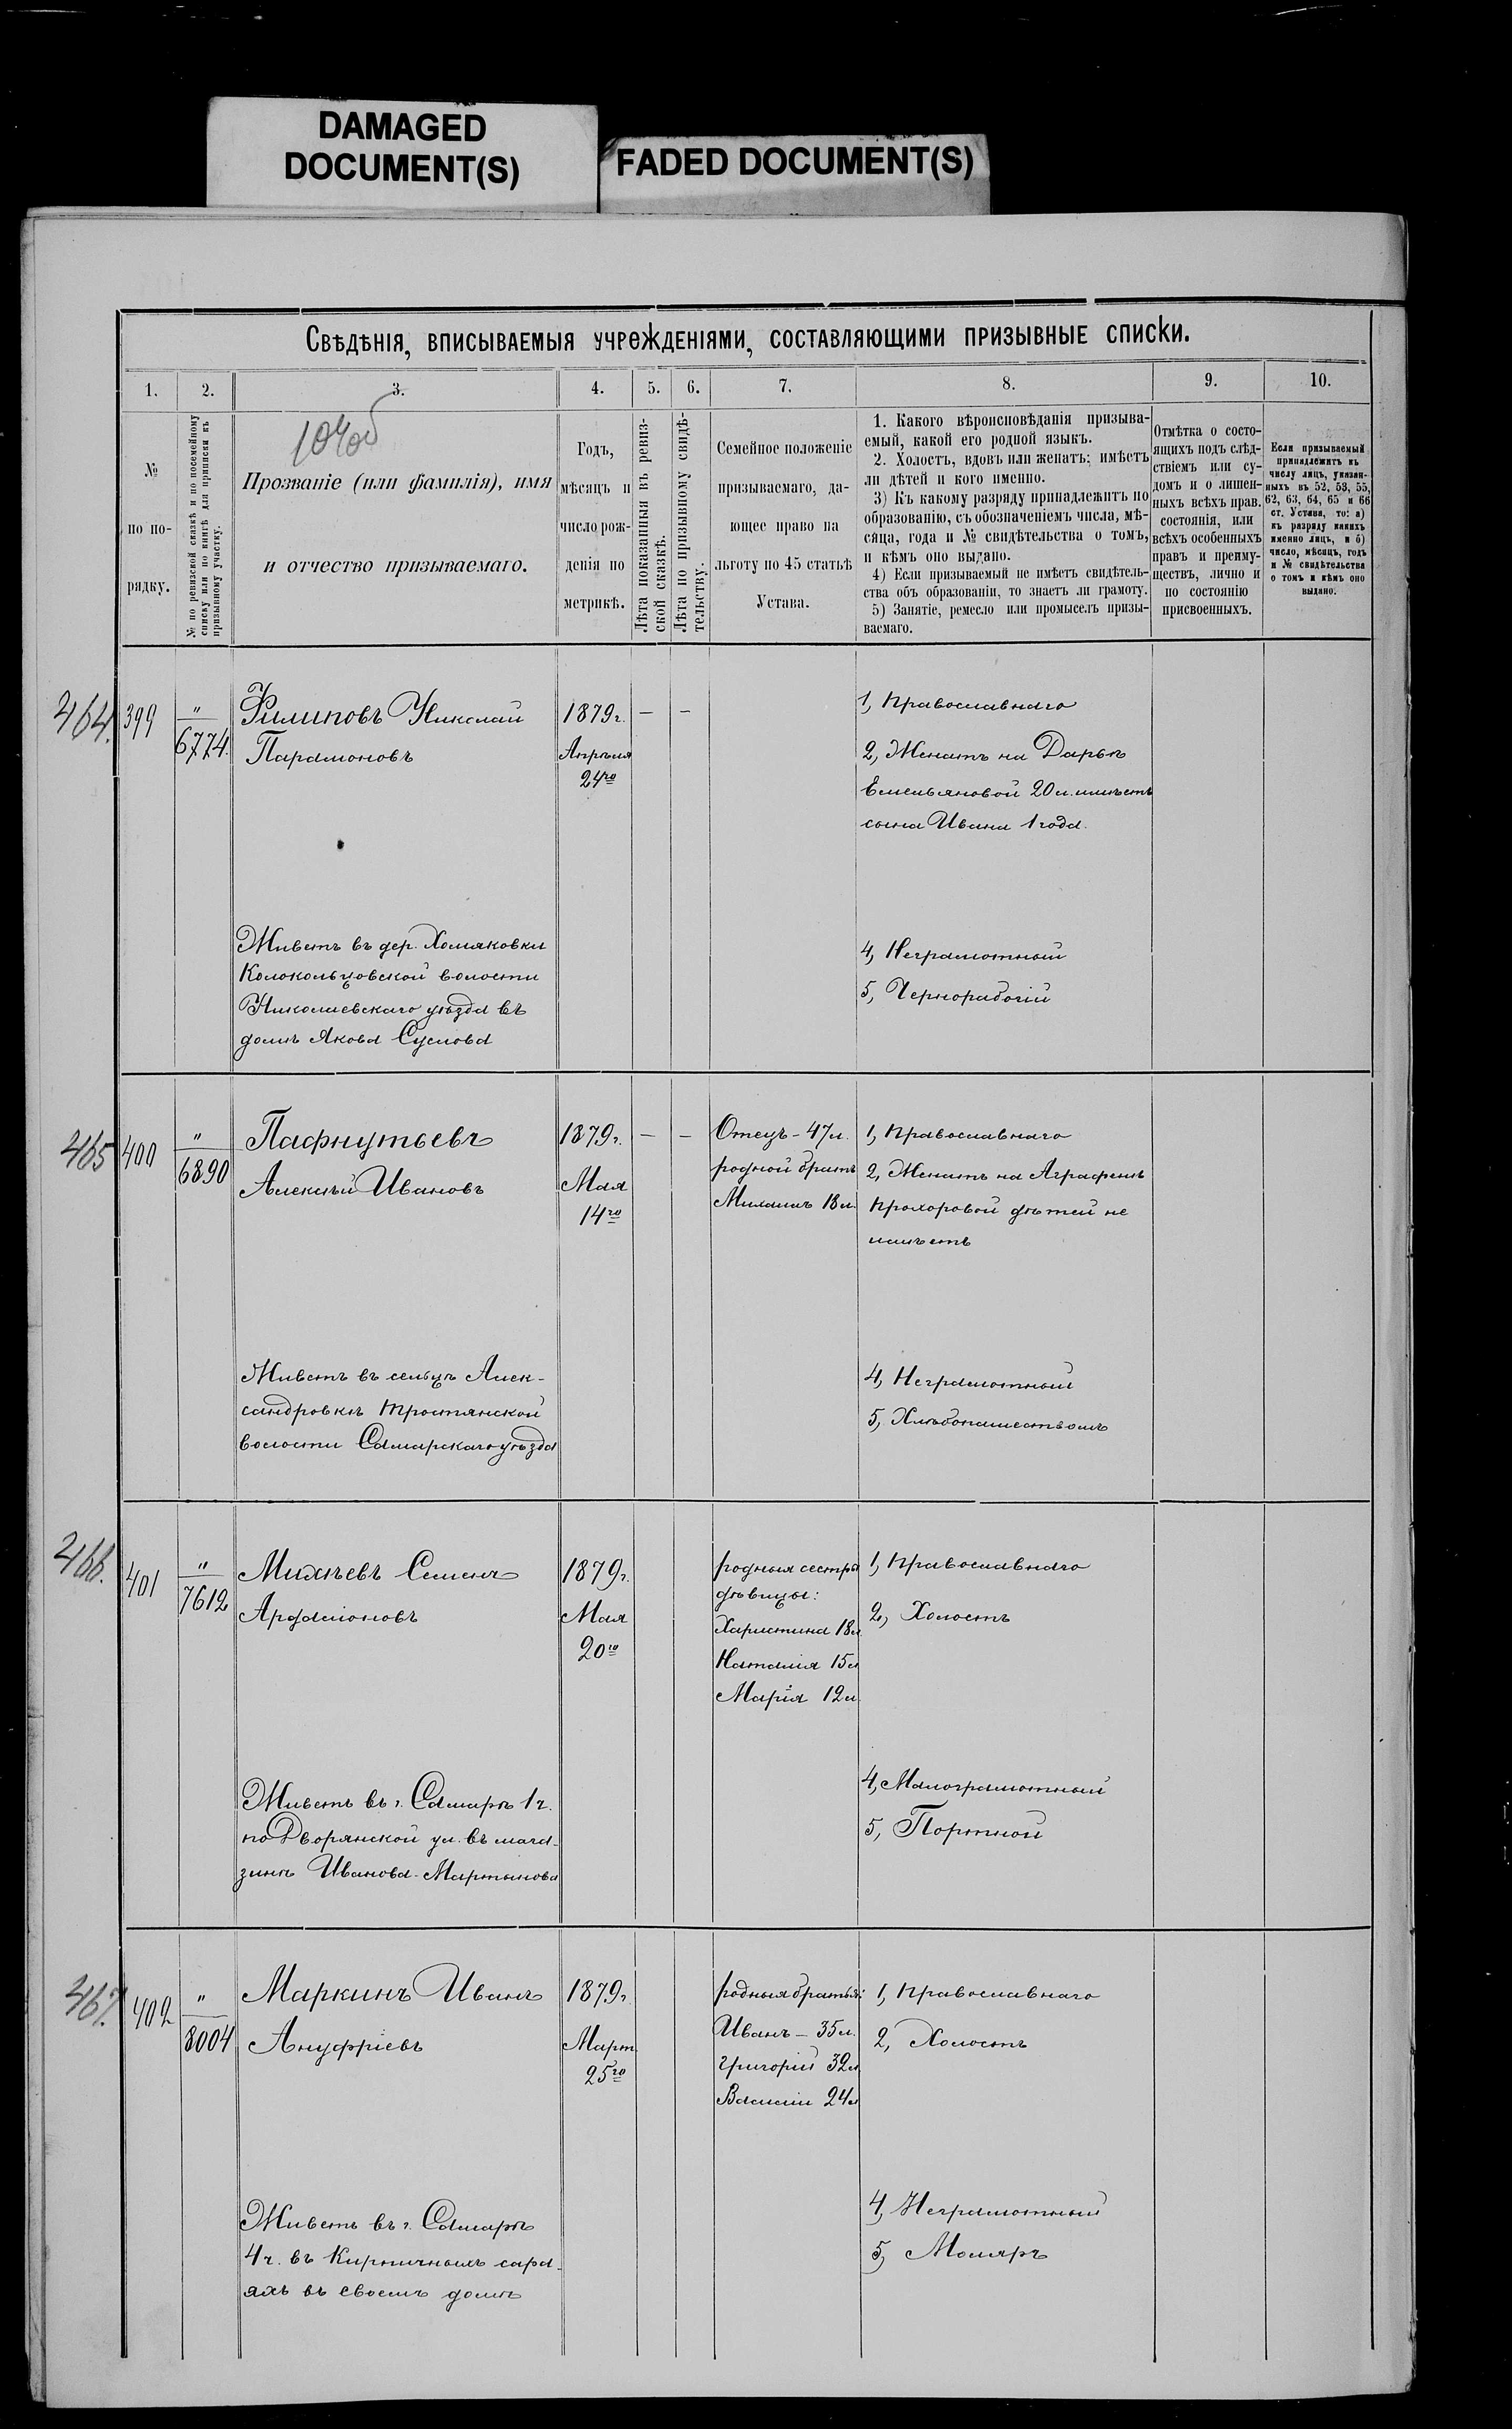 DAMAGED
DOCUMENT(S)
FADED DOCUMENT(S)
Свѣдѣнія, вписываемыя учрежденіями, составляющими призывные списки.
1.
2.
3.
4.
5.
6.
7.
8.
9.
10.
№
по по-
рядку.
№ по ревизской сказкѣ и по посемейному
списку или по книгѣ для приписки къ
призывному участку.
Прозваніе (или фамилія), имя
и отчество призываемаго.
Годъ,
мѣсяцъ и
число рож-
денія по
метрикѣ.
Лѣта показанныя въ ревиз-
ской сказкѣ.
Лѣта по призывному свидѣ-
тельству.
Семейное положеніе
призываемаго, да-
ющее право на
льготу по 45 статьѣ
Устава.
1. Какого вѣроисповѣданія призыва-
емый, какой его родной языкъ.
2. Холостъ, вдовъ или женатъ; имѣетъ
ли дѣтей и кого именно.
3) Къ какому разряду принадлежитъ по
образованію, съ обозначеніемъ числа, мѣ-
сяца, года и № свидѣтельства о томъ,
и кѣмъ оно выдано.
4) Если призываемый не имѣетъ свидѣтель-
ства объ образованіи, то знаетъ ли грамоту.
5) Занятіе, ремесло или промыселъ призы-
ваемаго.
Отмѣтка о состо-
ящихъ подъ слѣд-
ствіемъ или су-
домъ и о лишен-
ныхъ всѣхъ прав.
состоянія, или
всѣхъ особенныхъ
правъ и преиму-
ществъ, лично и
по состоянію
присвоенныхъ.
Если призываемый
принадлежитъ къ
числу лицъ, указан-
ныхъ въ 52, 53, 55,
62, 63, 64, 65 и 66
ст. Устава, то: а)
къ разряду какихъ
именно лицъ, и б)
число, мѣсяцъ, годъ
и № свидѣтельства
о томъ и кѣмъ оно
выдано.
464.
399
"
6774.
Филиповъ Николай
Парамоновъ
1879 г.
Апрѣля
24го
—
—
1, Православнаго
2, Женатъ на Дарьѣ
Емельяновой 20 л. имѣетъ
сына Ивана 1 года.
Живетъ въ дер. Хомяковки
Колокольцовской волости
Николаевскаго уѣзда въ
домѣ Якова Суслова
4, Неграмотный
5, Чернорабочій
465
400
"
6890
Пафнутьевъ
Алексѣй Ивановъ
1879 г.
Мая
14го
—
—
Отецъ - 47 л.
родной братъ
Михаилъ 18 л.
1, Православнаго
2, Женатъ на Аграфенѣ
Прохоровой дѣтей не
имѣетъ
Живетъ въ сельцѣ Алек-
сандровкѣ Тростянской
волости Самарскаго уѣзда
4, Неграмотный
5, Хлѣбопашествомъ
466.
401
"
7612
Михѣевъ Семенъ
Ардаліоновъ
1879 г.
Мая
20го
родныя сестры
дѣвицы:
Харистина 18 л.
Наталія 15 л
Марія 12 л.
1, Православнаго
2, Холостъ
Живетъ въ г. Самарѣ 1 ч.
по Дворянской ул. въ мага-
зинѣ Иванова-Мартынова
4, Малограмотный
5, Портной
467.
402
"
8004
Маркинъ Иванъ
Ануфріевъ
1879 г.
Март
25го
родныя братья:
Иванъ - 35 л.
Григорій 32 л
Василій 24 л
1, Православнаго
2, Холостъ
Живетъ въ г. Самарѣ
4 ч. въ Кирпичныхъ сара-
яхъ въ своемъ домѣ
4, Неграмотный
5, Моляръ